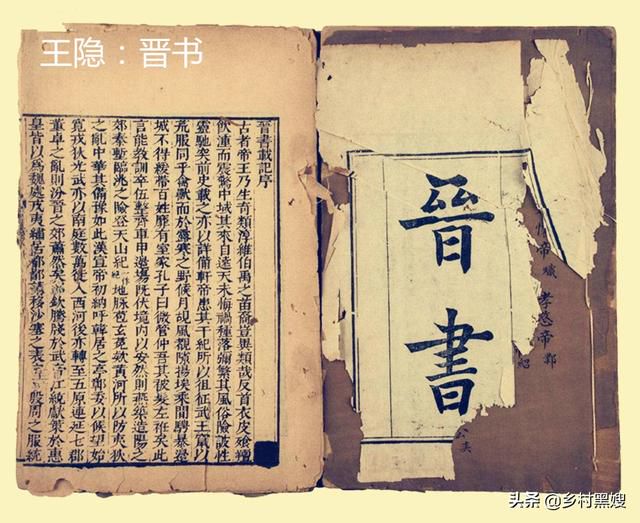 王隐：晋书
晉書載記序
古者帝王乃生奇類淳維伯禹之苗裔豈異類哉反首衣皮飧羶
飲湩而震驚中域其來自遠天未悔禍種落彌繁其風俗險詖性
靈馳突前史載之亦以詳備軒帝患其干紀所以徂征武王竄以
荒服同乎禽獸而於露寒之野候月覘風覩隙揚埃乘間騁暴邊
城不得緩帶百姓靡有室家孔子曰微管仲吾其被髮左袵矣此
言能教訓卒伍整齊車甲邊場既伏境內以安然則燕築造陽之
郊秦塹臨洮之險登天山紀地脉苞玄菟款黃河所以防夷狄
之亂中華其備豫如此漢宣帝初納呼韓居之亭鄣委以候望始
寬戎狄光武亦以南庭數萬徙入西河後亦轉至五原連延七郡
董卓之亂則汾晉之郊蕭然矣郭欽騰牋於武帝江統獻策於惠
皇皆以爲魏處戎夷繡居都鄙請移沙塞之表定殷周之服統
晉書
帝熾
孝愍帝鄴
紹
头条 @乡村黑嫂